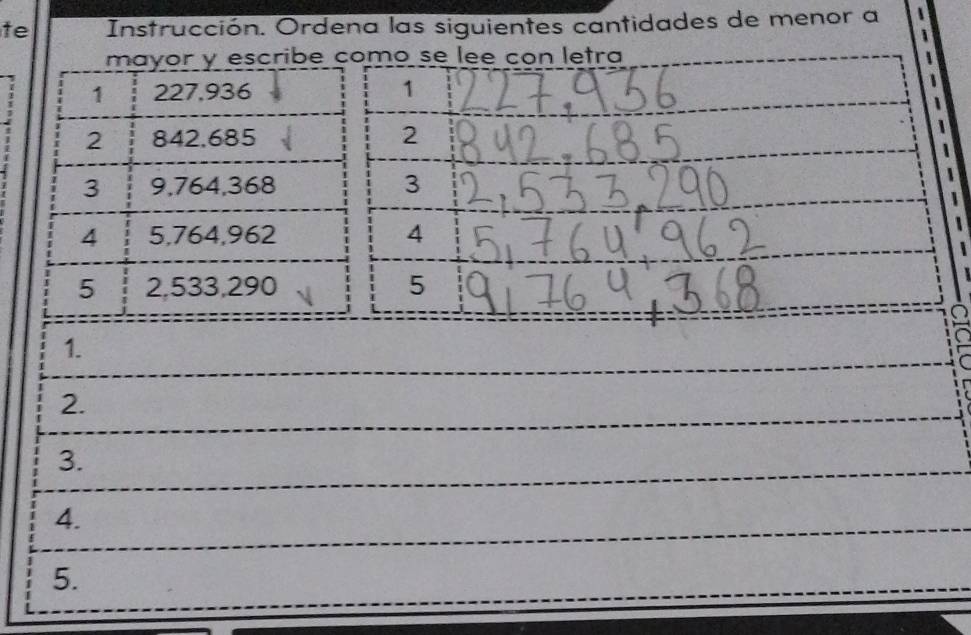 te
Instrucción. Ordena las siguientes cantidades de menor a
mayor y escribe como se lee con letra
1 227,936 1 227,936
2 842,685 2 842,685
3 9,764,368 3 2,533,290
4 5,764,962 4 5,764,962
5 2,533,290 5 9,764,368
1.
2.
3.
4.
5.
CICLO